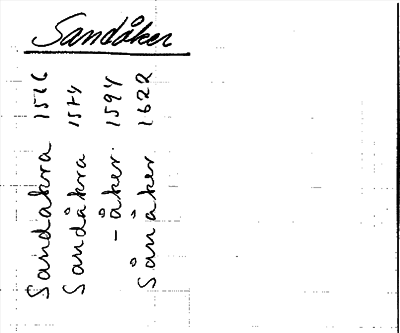 Sandåker
Sandakra 1516
Sandåkra 1574
-åker. 1594
Sånåker 1622